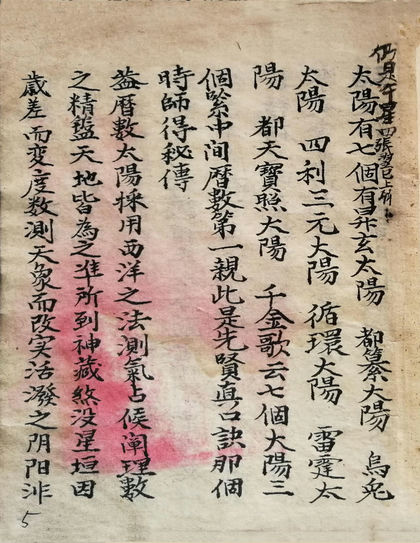 太陽有七個有昇玄太陽　都纂太陽　烏兔
太陽　四利三元太陽　循環太陽　雷霆太
陽　都天寶照大陽　千金歌云七個大陽三
個緊中间曆數第一親此是先賢真口訣那個
時師得秘傳
葢曆數太陽採用西洋之法測氣占候阐理數
之精盤天地皆為之准所到神藏煞没星垣因
歲差而变度数測天象而改实活潑之阴阳泮
5